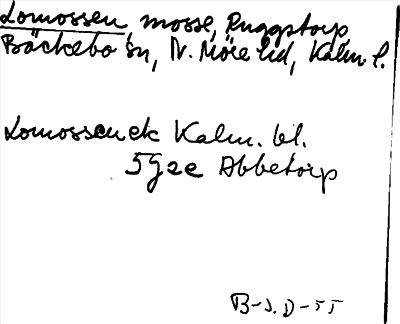 Lomossen, mosse, Ruggstorp,
Bäckebo sn, N. Möre hd, Kalm. l.
Lomossen ek Kalm. bl.
5g2e Abbetorp
B-J.D-55